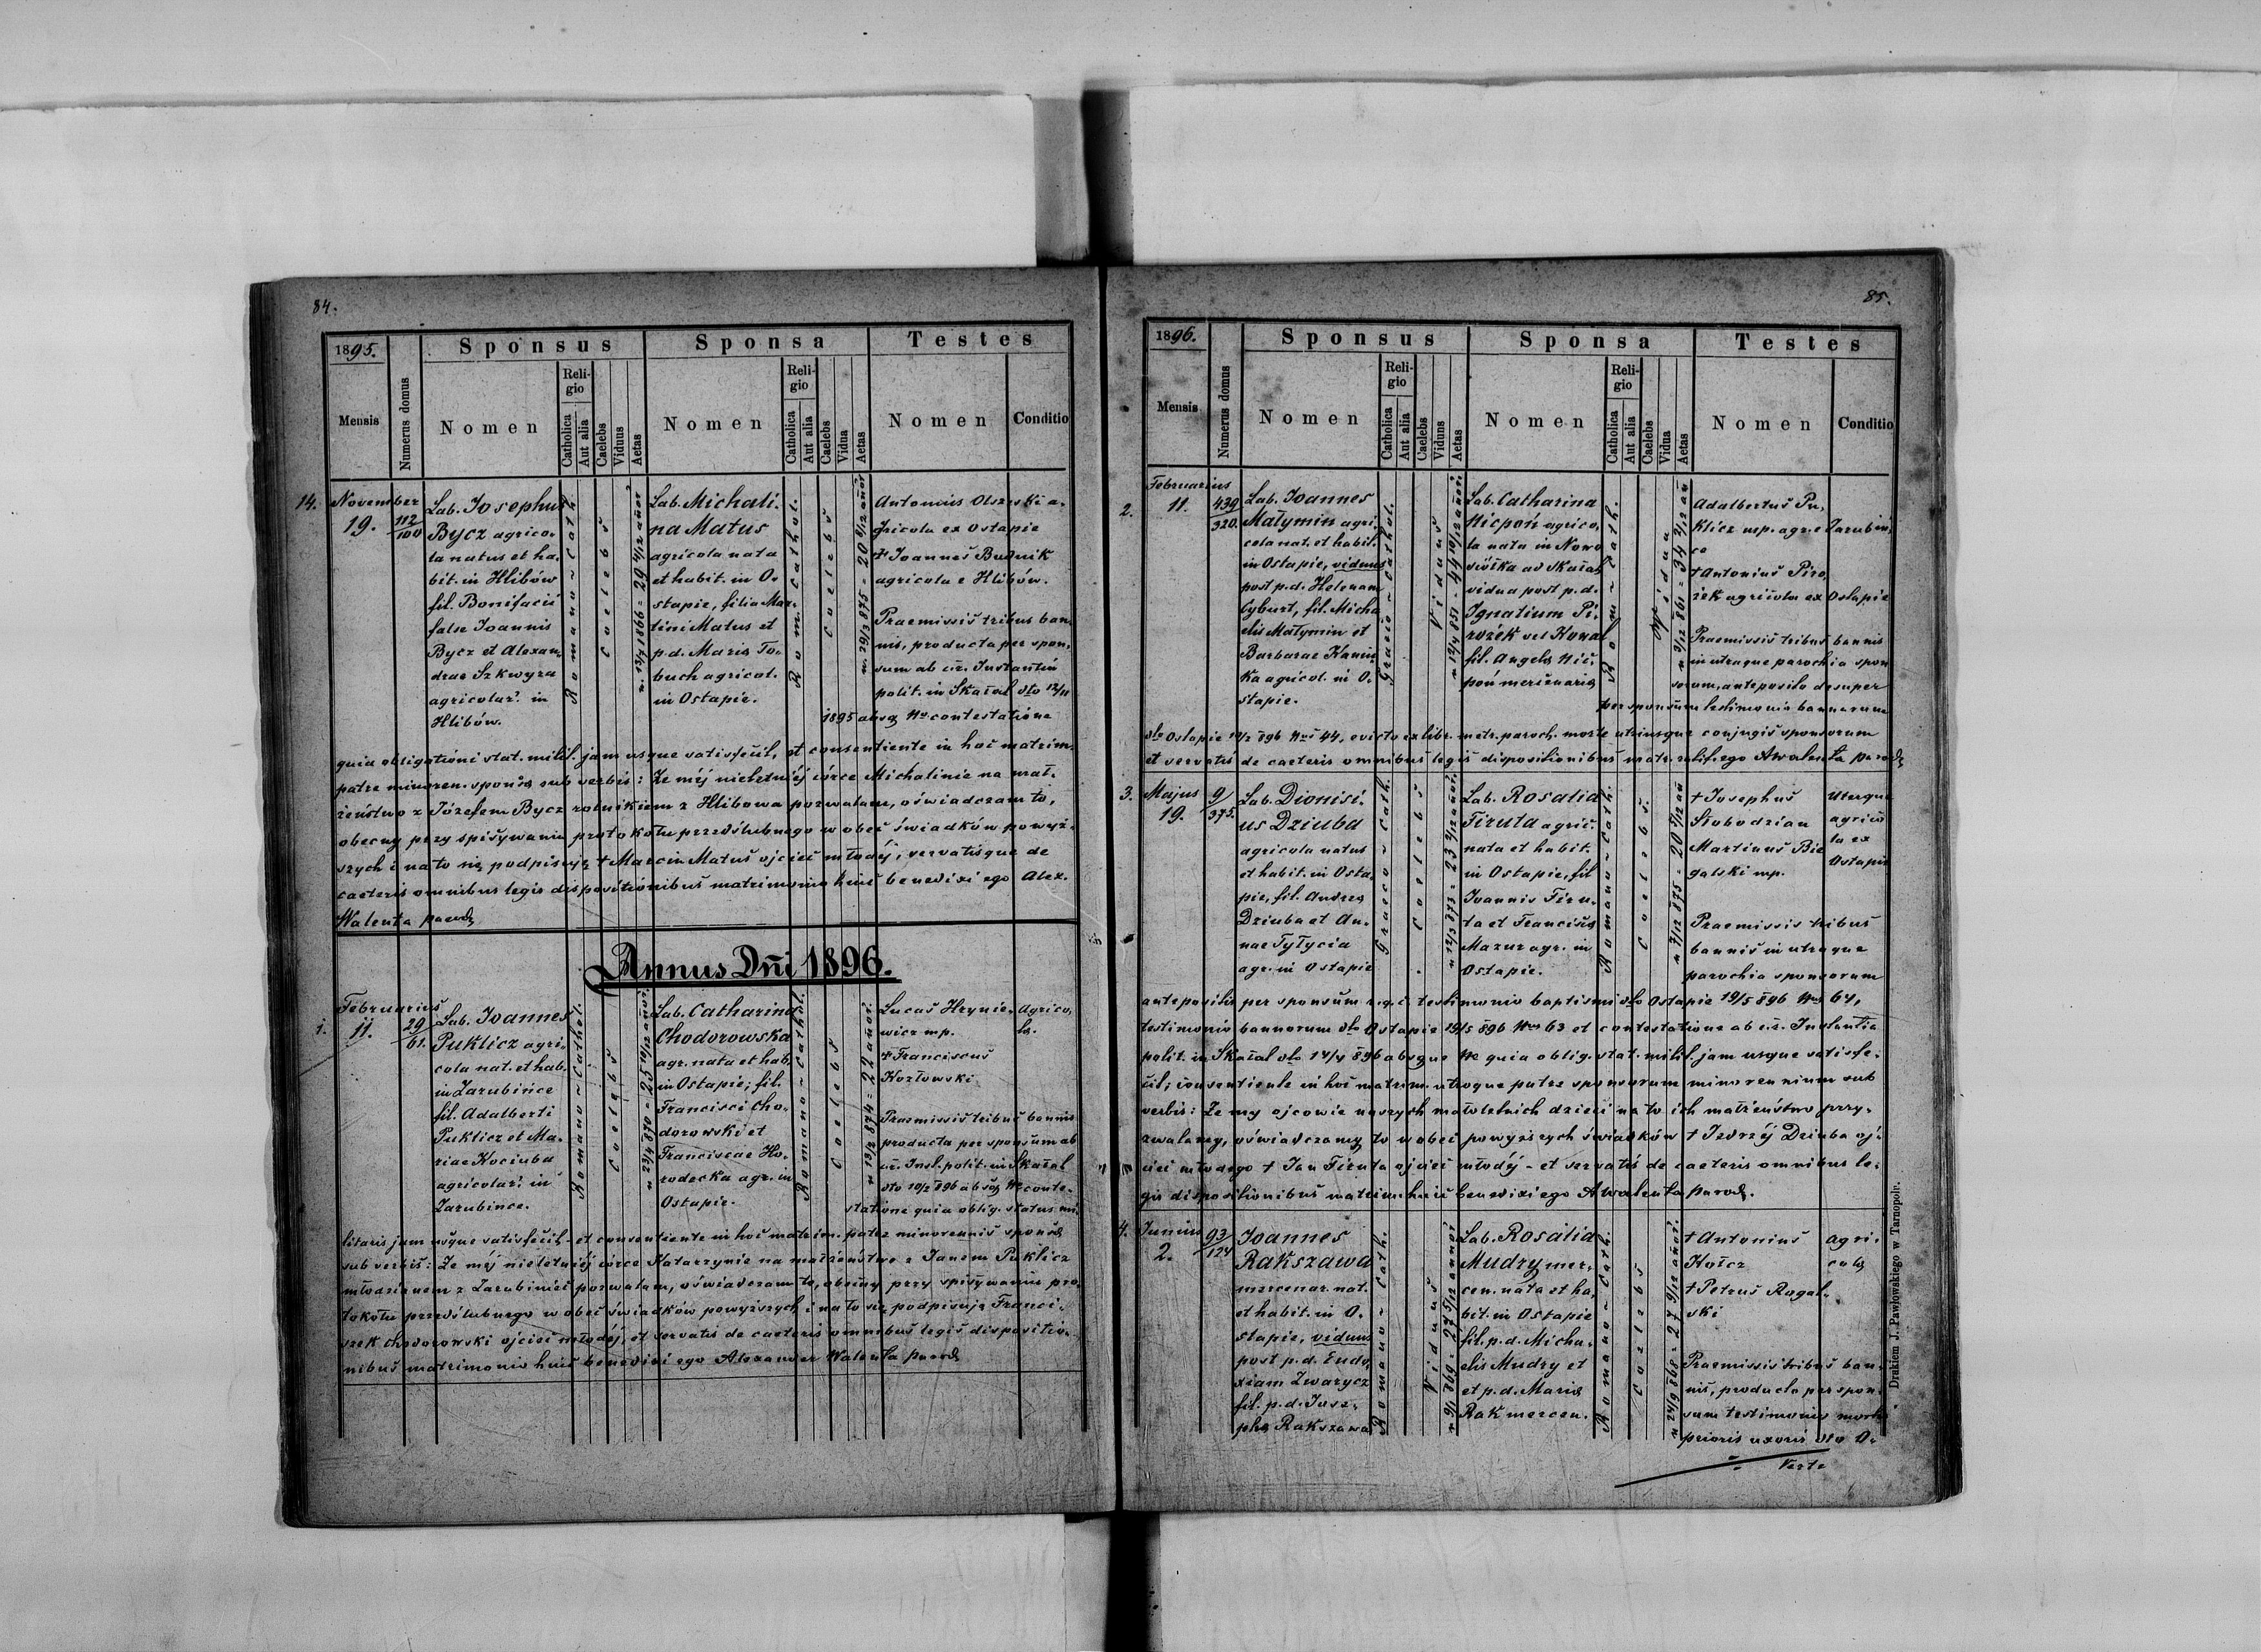 84.
1895.
Mensis
Numerus domus
Sponsus
Nomen
Religio
Catholica
Aut alia
Caelebs
Viduus
Aetas
Sponsa
Nomen
Religio
Catholica
Aut alia
Caelebs
Vidua
Aetas
Testes
Nomen
Conditio
14.
November
19.
112
100
Lab. Josephus
Bycz agrico-
la natus et ha-
bit. in Hlibów
fil. Bonifacii
false Joannis
Bycz et Alexan-
drae Szkwyra
agricolar. in
Hlibów.
Romano-cath.
Coelebs
n. 13/7 1866 = 29 4/12 añor
Lab. Michali-
na Matus
agricola nata
et habit. in O-
stapie, filia Mar-
tini Matus et
p.d. Maria To-
buch agricol.
in Ostapie.
Rom. cathol.
Coelebs
n. 29/3 875 = 20 8/12 añor
Antonius Olszeski a-
gricola ex Ostapie
+ Joannes Budnik
agricola e Hlibów.
Praemissis tribus ban-
nis, producta per spon-
sum ab c.r. Instantia
polit. in Skałat dto 12/11
1895 absq No contestatione
quia obligationi stat. milit. jam usque satisfecit, et consentiente in hoc matrim.
patre minoren. sponsa sub verbis: Że méj nieletniéj córce Michalinie na mał-
żeństwo z Józefem Bycz rolnikiem z Hlibowa pozwalam, oświadczam to,
obecny przy spisywaniu protokołu przedślubnego wobec świadków powyż-
szych i na to się podpisuję + Marcin Matus ojciec młodéj; servatisque de
caeteris omnibus legis dispositionibus matrimonio huic benedixi ego Alex.
Walenta paroch
Annus Dñi 1896.
1.
Februarius
11.
29
61.
Lab. Joannes
Puklicz agri-
cola nat. et hab.
in Zarubince
fil. Adalberti
Puklicz et Ma-
riae Kociuba
agricolar. in
Zarubince.
Romano-Cathol.
Coelebs
n 23/4 870 = 25 10/12 añor.
Lab. Catharina
Chodorowska
agr. nata et hab.
in Ostapie; fil.
Francisci Cho-
dorowski et
Franciscae Ho-
rodecka agr. in
Ostapie.
Romano-cathol.
Coelebs
n 13/2 874 = 22 añor.
Lucas Hrynie-
wicz mp.
+ Franciscus
Kozłowski
Agrico-
la.
Praemissis tribus bannis
producta per sponsum ab
c.r. Inst. polit. in Skałat
dto 10/2 896 absq No conte-
statione quia oblig. status mi-
litaris jam usque satisfecit - et consentiente in hoc matrim. patre minorennis sponsa
sub verbis: Że méj nieletniéj córce Katarzynie na małżeństwo z Janem Puklicz
młodzianem z Zarubiniec pozwalam, oświadczam to, obecny przy spisywaniu pro-
tokołu przedślubnego wobec świadków powyższych i na to się podpisuję Franci-
szek Chodorowski ojciec młodéj, et servatis de caeteris omnibus legis dispositio-
nibus matrimonio huic benedixi ego Alexander Walenta paroch
85.
1896.
Mensis
Numerus domus
Sponsus
Nomen
Religio
Catholica
Aut alia
Caelebs
Viduus
Aetas
Sponsa
Nomen
Religio
Catholica
Aut alia
Caelebs
Vidua
Aetas
Testes
Nomen
Conditio
2.
Februarius
11.
439
320.
Lab. Joannes
Małymin agri-
cola nat. et habit.
in Ostapie, viduus
post p.d. Helenam
Cyburt, fil. Micha-
elis Małymin et
Barbarae Kanic-
ka agricol. in O-
stapie.
Graeco-cathol.
Viduus
n 12/4 851 = 44 10/12 añor.
Lab. Catharina
Nicpoń agrico-
la nata in Nowo-
siółka ad Skałat
vidua post p.d.
Ignatium Pi-
rożek vel Kowal
fil. Angela Nic-
poń mercenaria
Rom-cath.
Vidua
n 2/12 861 = 34 2/12 añ
Adalbertus Pu-
klicz mp. agr. e Zarubin-
ce
+ Antonius Piro-
żek agricola ex Ostapie
Praemissis tribus bannis
in utraque parochia spon-
sorum, anteposito desuper
per sponsum testimonio bannorum
dto Ostapie 10/2 896 Nri 44, evicto ex libr. metr. paroch. morte utriusque conjugis sponsorum
et servatis de caeteris omnibus legis dispositionibus matr. ratif. ego Awalenta paroch
3.
Majus
19.
9
375.
Lab. Dionisi-
us Dziuba
agricola natus
et habit. in Osta-
pie, fil. Andrea
Dziuba et An-
nae Tytycia
agr. in Ostapie
Graeco-cath.
Coelebs
n 12/3 873 = 23 2/12 añor.
Lab. Rosalia
Firuta agric.
nata et habit.
in Ostapie, fil.
Joannis Firu-
ta et Francisca
Mazur agr. in
Ostapie.
Romano-cath.
Coelebs.
n 7/12 875 = 20 5/12 añ
+ Josephus
Słobodzian
Martinus Bie-
galski mp.
Uterque
agrico-
la ex
Ostapie
Praemissis tribus
bannis in utraque
parochia sponsorum
antepositis per sponsum r.g.c. testimonio baptismi dto Ostapie 19/5 896 Nro 64,
testimonio bannorum dto Ostapie 19/5 896 Nro 63 et contestatione ab c.r. Instantia
polit. in Skałat dto 14/4 896 absque No quia oblig. stat. milit. jam usque satisfe-
cit; consentiente in hoc matrim. utroque patre sponsorum minorennium sub
verbis: Że my ojcowie naszych małoletnich dzieci na to ich małżeństwo przy-
zwalamy, oświadczamy to wobec powyższych świadków + Jędrzéj Dziuba oj-
ciec młodego + Jan Firuta ojciec młodéj - et servatis de caeteris omnibus le-
gis dispositionibus matrim. huic benedixi ego Awalenta paroch.
4.
Junius
2.
93
124
Joannes
Rakszawa
mercenar. nat.
et habit. in O-
stapie, viduus
post p.d. Eudo-
xiam Zwarycz
fil. p.d. Jose-
pha Rakszawa
Romano-cath.
Viduus
n 9/1 869 = 27 5/12 añor
Lab. Rosalia
Mudry mer-
cen. nata et ha-
bit. in Ostapie
fil. p.d. Micha-
elis Mudry et
et p.d. Maria
Rak mercen.
Romano-cath.
Coelebs
n 24/9 868 = 27 9/12 añor.
+ Antonius
Hołcz
+ Petrus Rogal-
ski
agri-
cola
Praemissis tribus ban-
nis, producto per spon-
sum testimonio mortis
prioris uxoris dto O-
Verte
Drukiem J. Pawłowskiego w Tarnopolu.